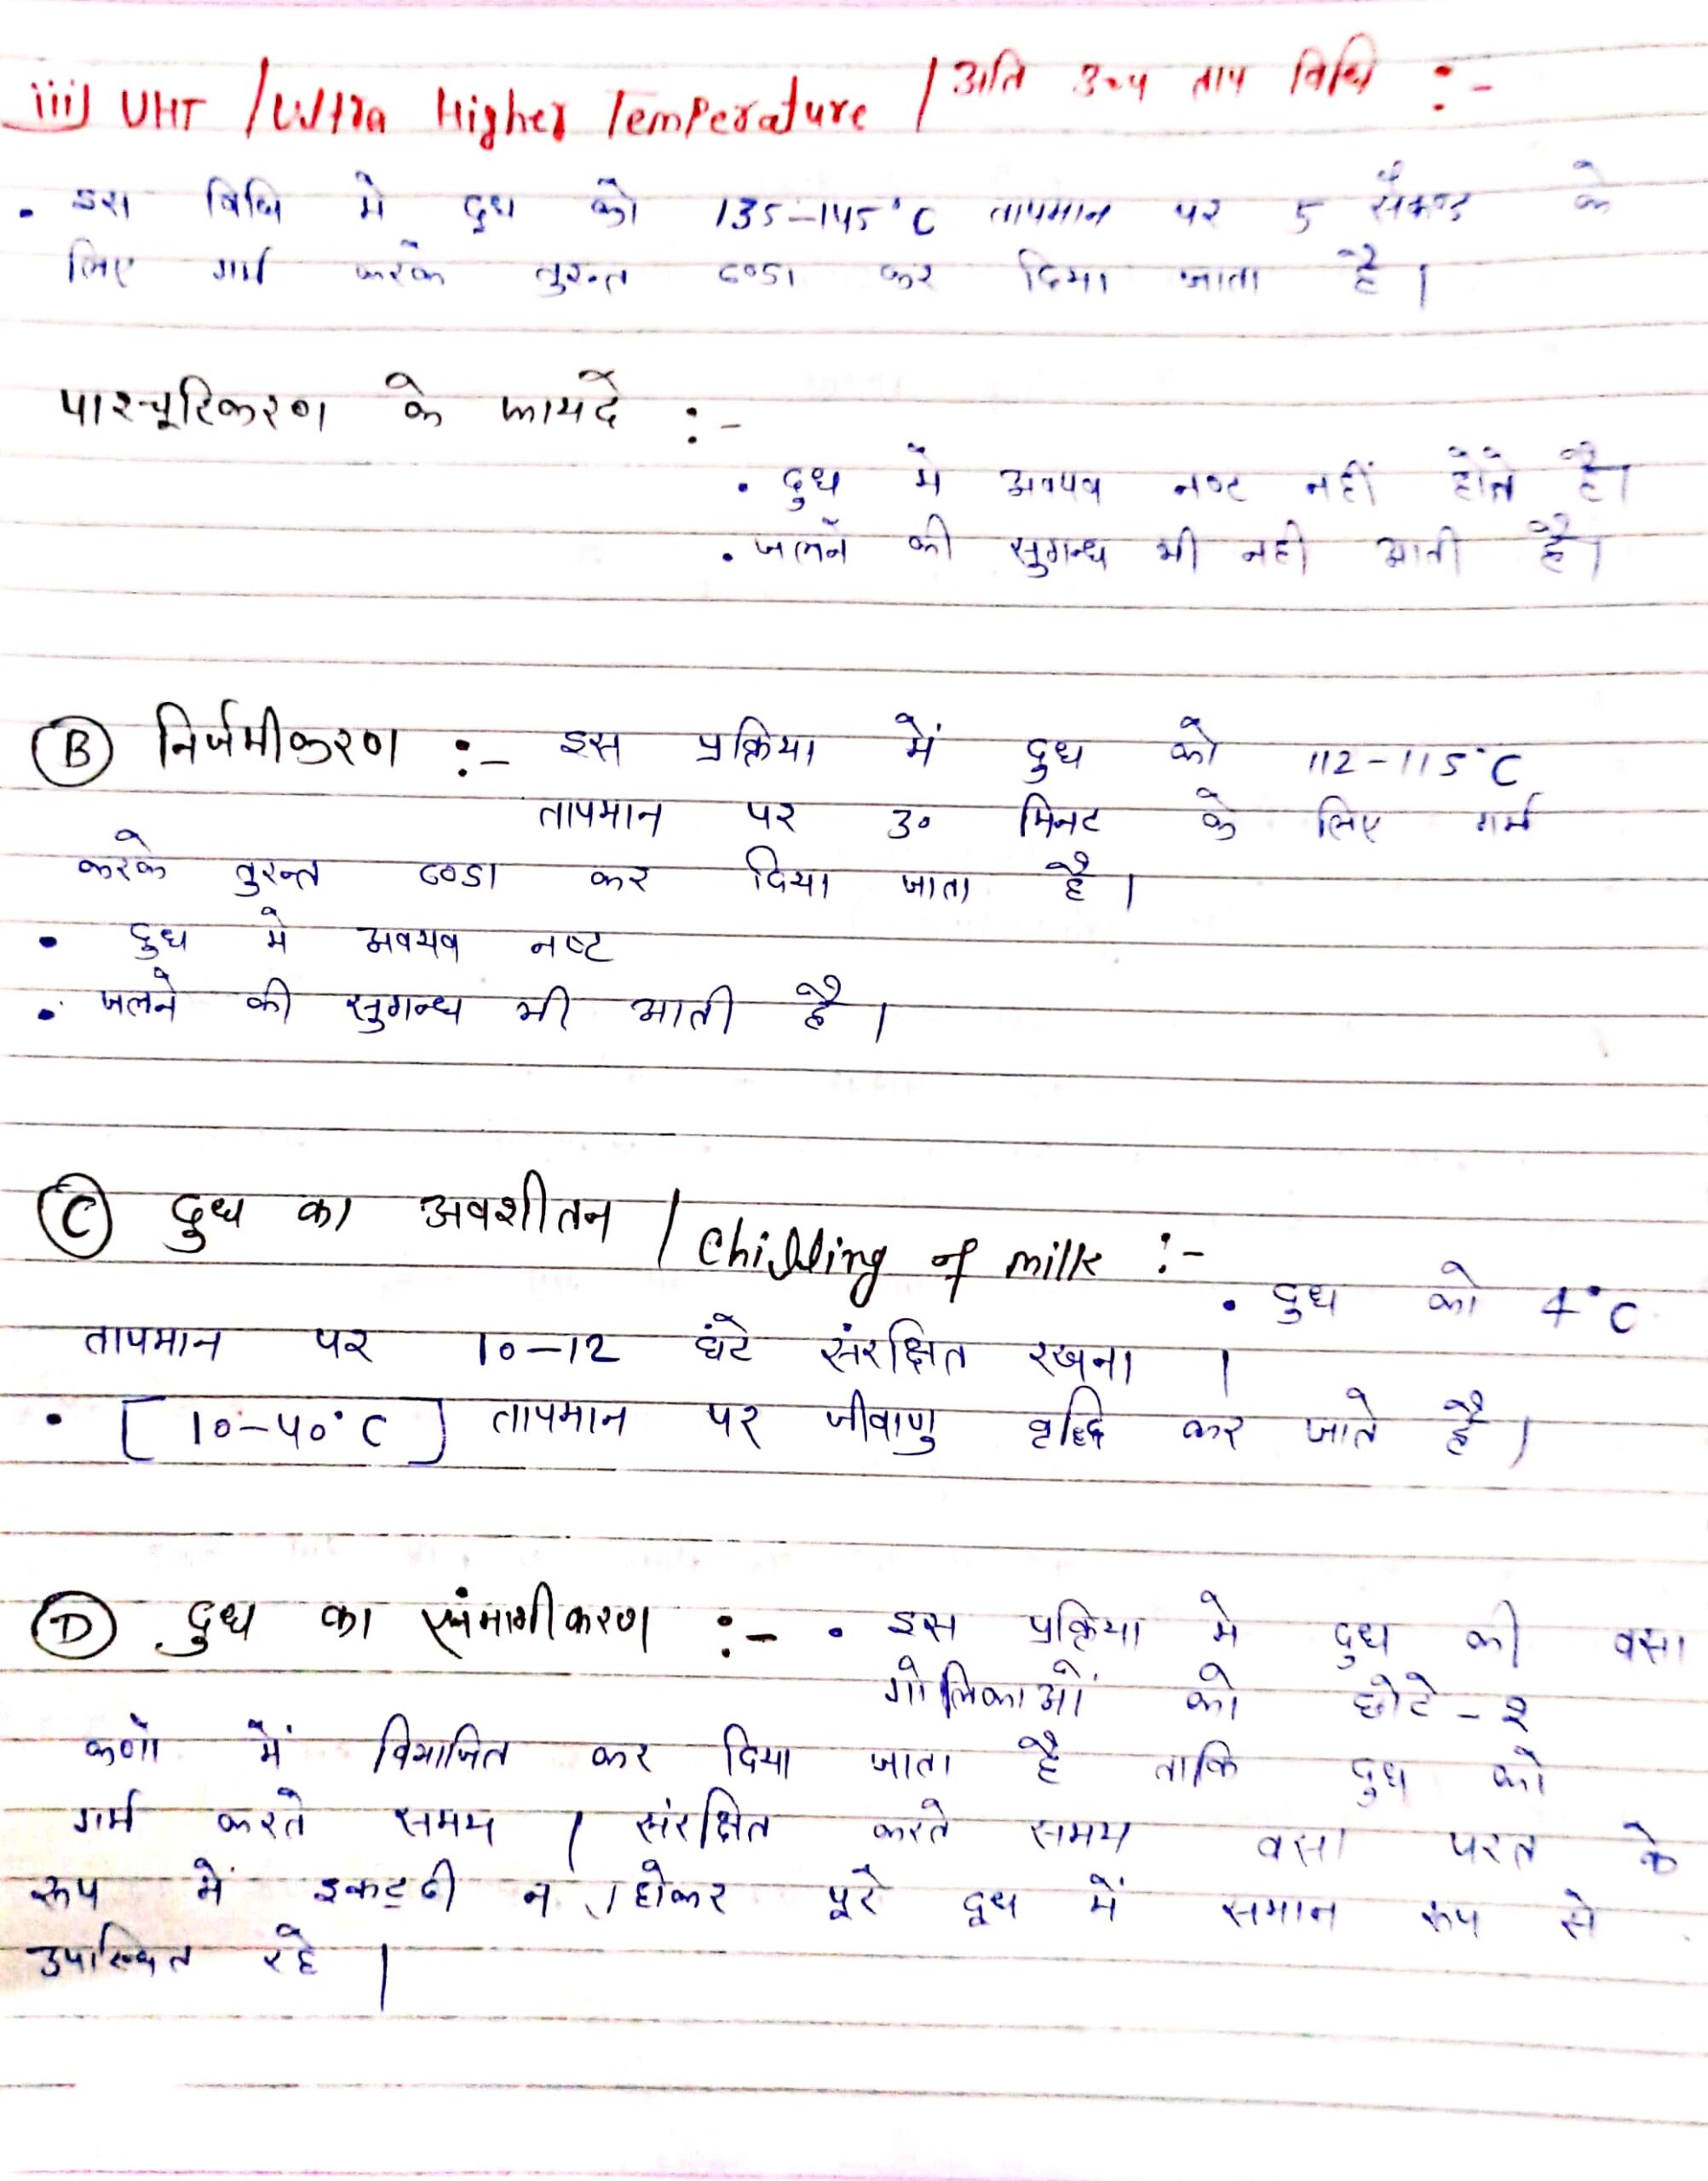 iii) UHT / Ultra Higher Temperature / अति उच्च ताप विधि :-
• इस विधि मे दुध को 135-145°C तापमान पर 5 सैकण्ड के
लिए गर्म करके तुरन्त ठण्डा कर दिया जाता है।
पास्चूरिकरण के फायदें :-
• दुध मे अवयव नष्ट नहीं होते है।
• जलने की सुगन्ध भी नही आती है।
(B) निर्जमीकरण :- इस प्रक्रिया में दुध को 112-115°C
तापमान पर 30 मिनट के लिए गर्म
करके तुरन्त ठण्डा कर दिया जाता है।
• दुध मे अवयव नष्ट
• जलने की सुगन्ध भी आती है।
(C) दुध का अवशीतन / Chilling of milk :-
• दुध को 4°C
तापमान पर 10-12 घंटे संरक्षित रखना।
• [10-40°C] तापमान पर जीवाणु वृद्धि कर जाते है।
(D) दुध का संमागीकरण :- • इस प्रक्रिया मे दुध की वसा
गोलिकाओं को छोटे-२
कणों में विभाजित कर दिया जाता है ताकि दुध को
गर्म करते समय / संरक्षित करते समय वसा परत के
रूप में इकट्ठी न होकर पूरे दूध में समान रूप से
उपस्थित रहे।